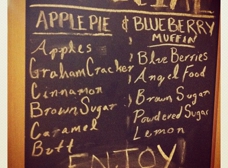 APPLE PIE & BLUEBERRY
MUFFIN
Apples
Graham Cracker
Cinnamon
Brown Sugar
Caramel
Butt
Blue Berries
Angel Food
Brown Sugar
Powdered Sugar
Lemon
ENJOY